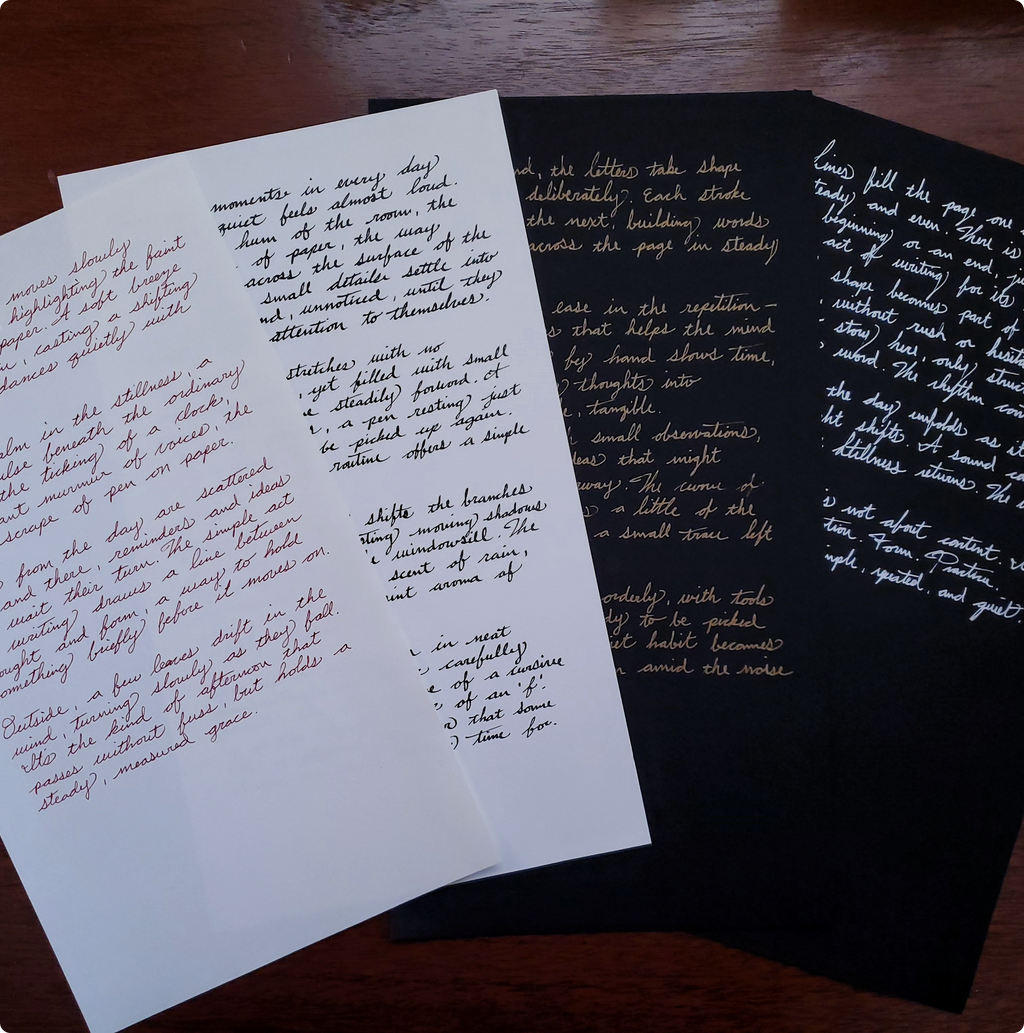 moves slowly
highlighting the faint
paper. A soft breeze
casting a shifting
dances quietly with
in the stillness, a
beneath the ordinary
the ticking of a clock,
murmur of voices, the
scrape of pen on paper.
from the day are scattered
and there, reminders and ideas
wait their turn. The simple act
writing draws a line between
and form, a way to hold
something briefly before it moves on.
Outside, a few leaves drift in the
wind, turning slowly as they fall.
It's the kind of afternoon that
passes without fuss, but holds a
steady, measured grace.
moments in every day
quiet feels almost loud.
hum of the room, the
of paper, the way
across the surface of the
small details settle into
unnoticed, until they
attention to themselves.
stretches with no
yet filled with small
steadily forward. A
, a pen resting just
be picked up again.
routine offers a simple
shifts the branches
moving shadows
windowsill. The
scent of rain,
aroma of
in neat
carefully
of a cursive
of an 'f'.
that some
time for.
the letters take shape
deliberately. Each stroke
the next, building words
across the page in steady
ease in the repetition—
that helps the mind
by hand shows time,
thoughts into
, tangible.
small observations,
that might
The curve of
a little of the
a small trace left
orderly, with tools
to be picked
habit becomes
amid the noise
lines fill the page one
and even. There is
beginning or an end,
act of writing for its
shape becomes part of
without rush or
story here, only
word. The rhythm
the day unfolds as
shifts. A sound
stillness returns. The
not about content.
Form. Practice.
repeated, and quiet.